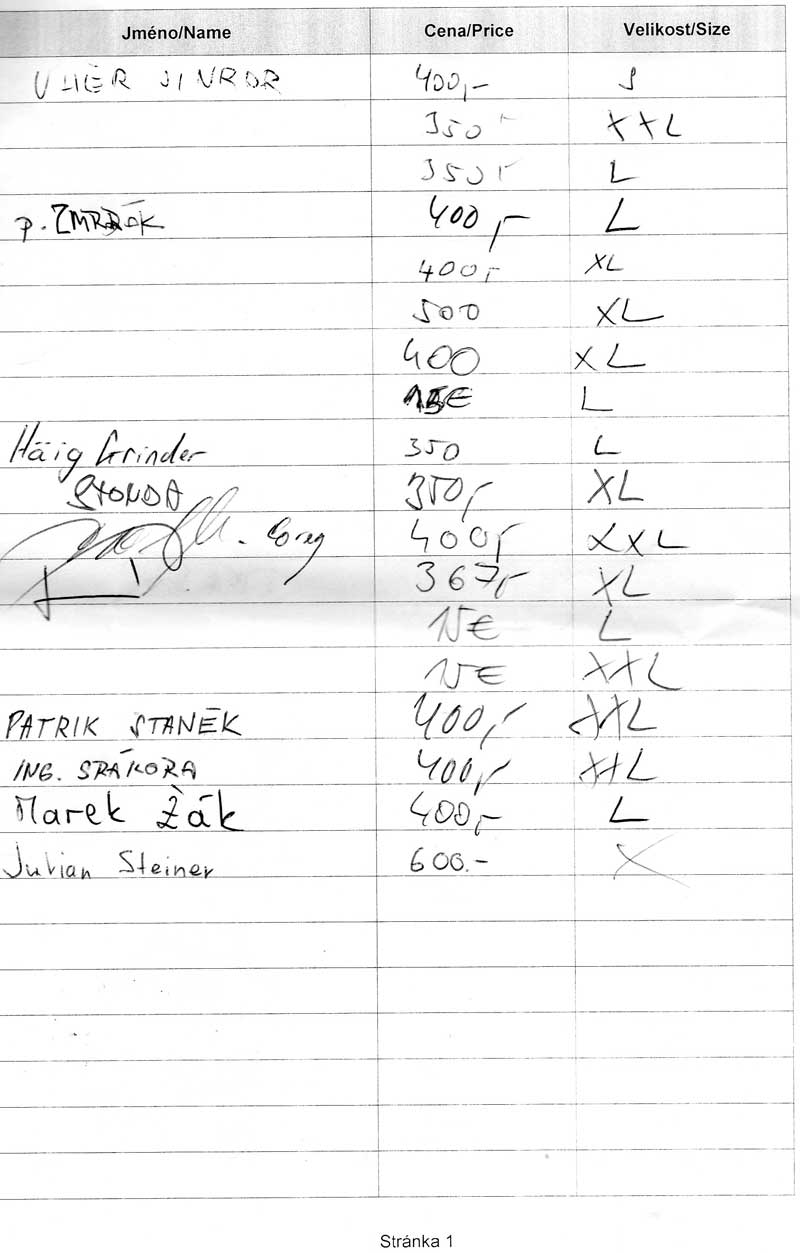 Jméno/Name Cena/Price Velikost/Size
400,- S
350,- XXL
350,- L
p. 400,- L
400,- XL
500 XL
400 XL
15€ L
Häig Grinder 350 L
STONDA 350,- XL
400,- XXL
367,- XL
15€ L
15€ XXL
PATRIK STANĚK 400,- XXL
ING. SRÁKORA 400,- XXL
Marek Žák 400,- L
Julian Steiner 600.- X
Stránka 1